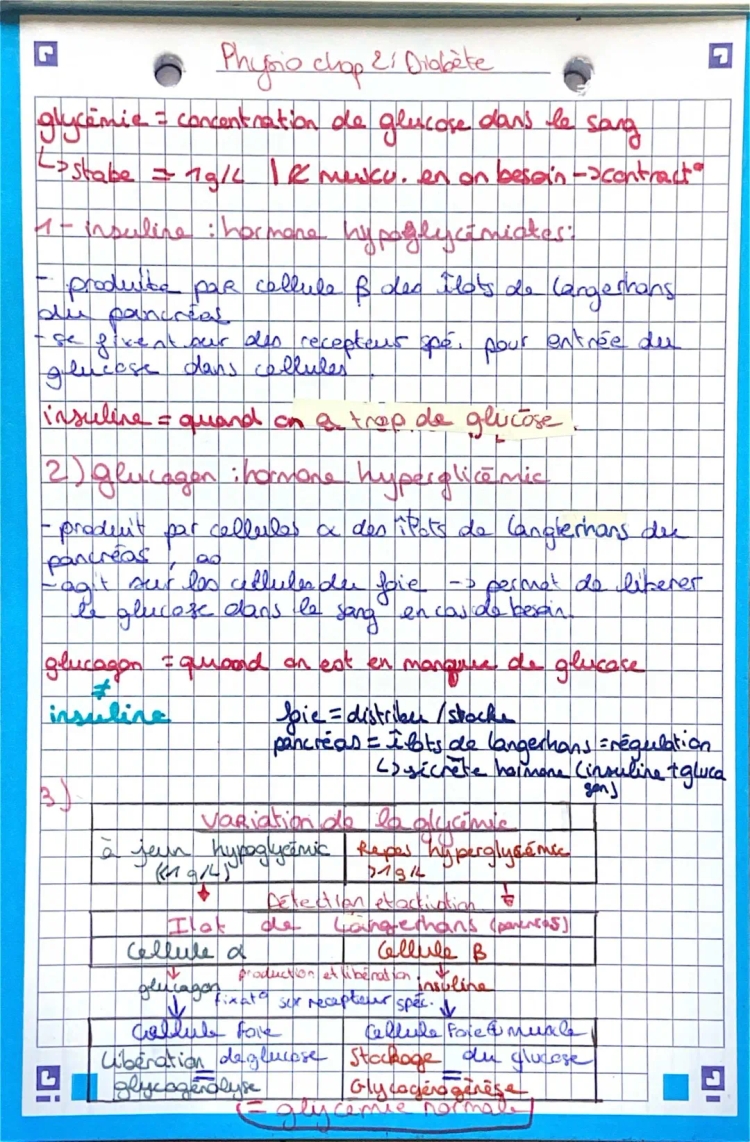 Physio chap 2: Diabète
glycémie = concentration de glucose dans le sang
↳ stabe = 1g/L muscu. en on besoin -> contract°
1- insuline : hormone hypoglycémiates:
- produite par cellule β des Îlots de Langerhans
du pancréas
- se fixent sur des recepteur spé. pour entrée du
glucose dans cellules.
insuline = quand on a trop de glucose.
2) glucagon : hormone hyperglicémic
- produit par cellules α des îlots de Langherhans du
pancréas,
- agit sur les cellules du foie -> permet de liberer
le glucose dans le sang en cas de besoin.
glucagon = quoand on est en manque de glucose
≠
insuline
foie = distribeu / stocke
pancréas = Îlots de Langerhans = régulation
↳ sécrète hormone (insuline + gluca
gon)
3)
Variation de la glycémie
à jeun hypoglycémic Repas hyperglycémic
(<1 g/L) >1g/L
Détection et activation
Ilot de Langerhans (pancréas)
Cellule α Cellule β
production et libération
glucagon insuline
fixat° sur recepteur spéc.
Cellule foie Cellule Foie & muscle
Libération de glucose Stockage du glucose
glycogénolyse Glycogénogénèse
= glycémie normale